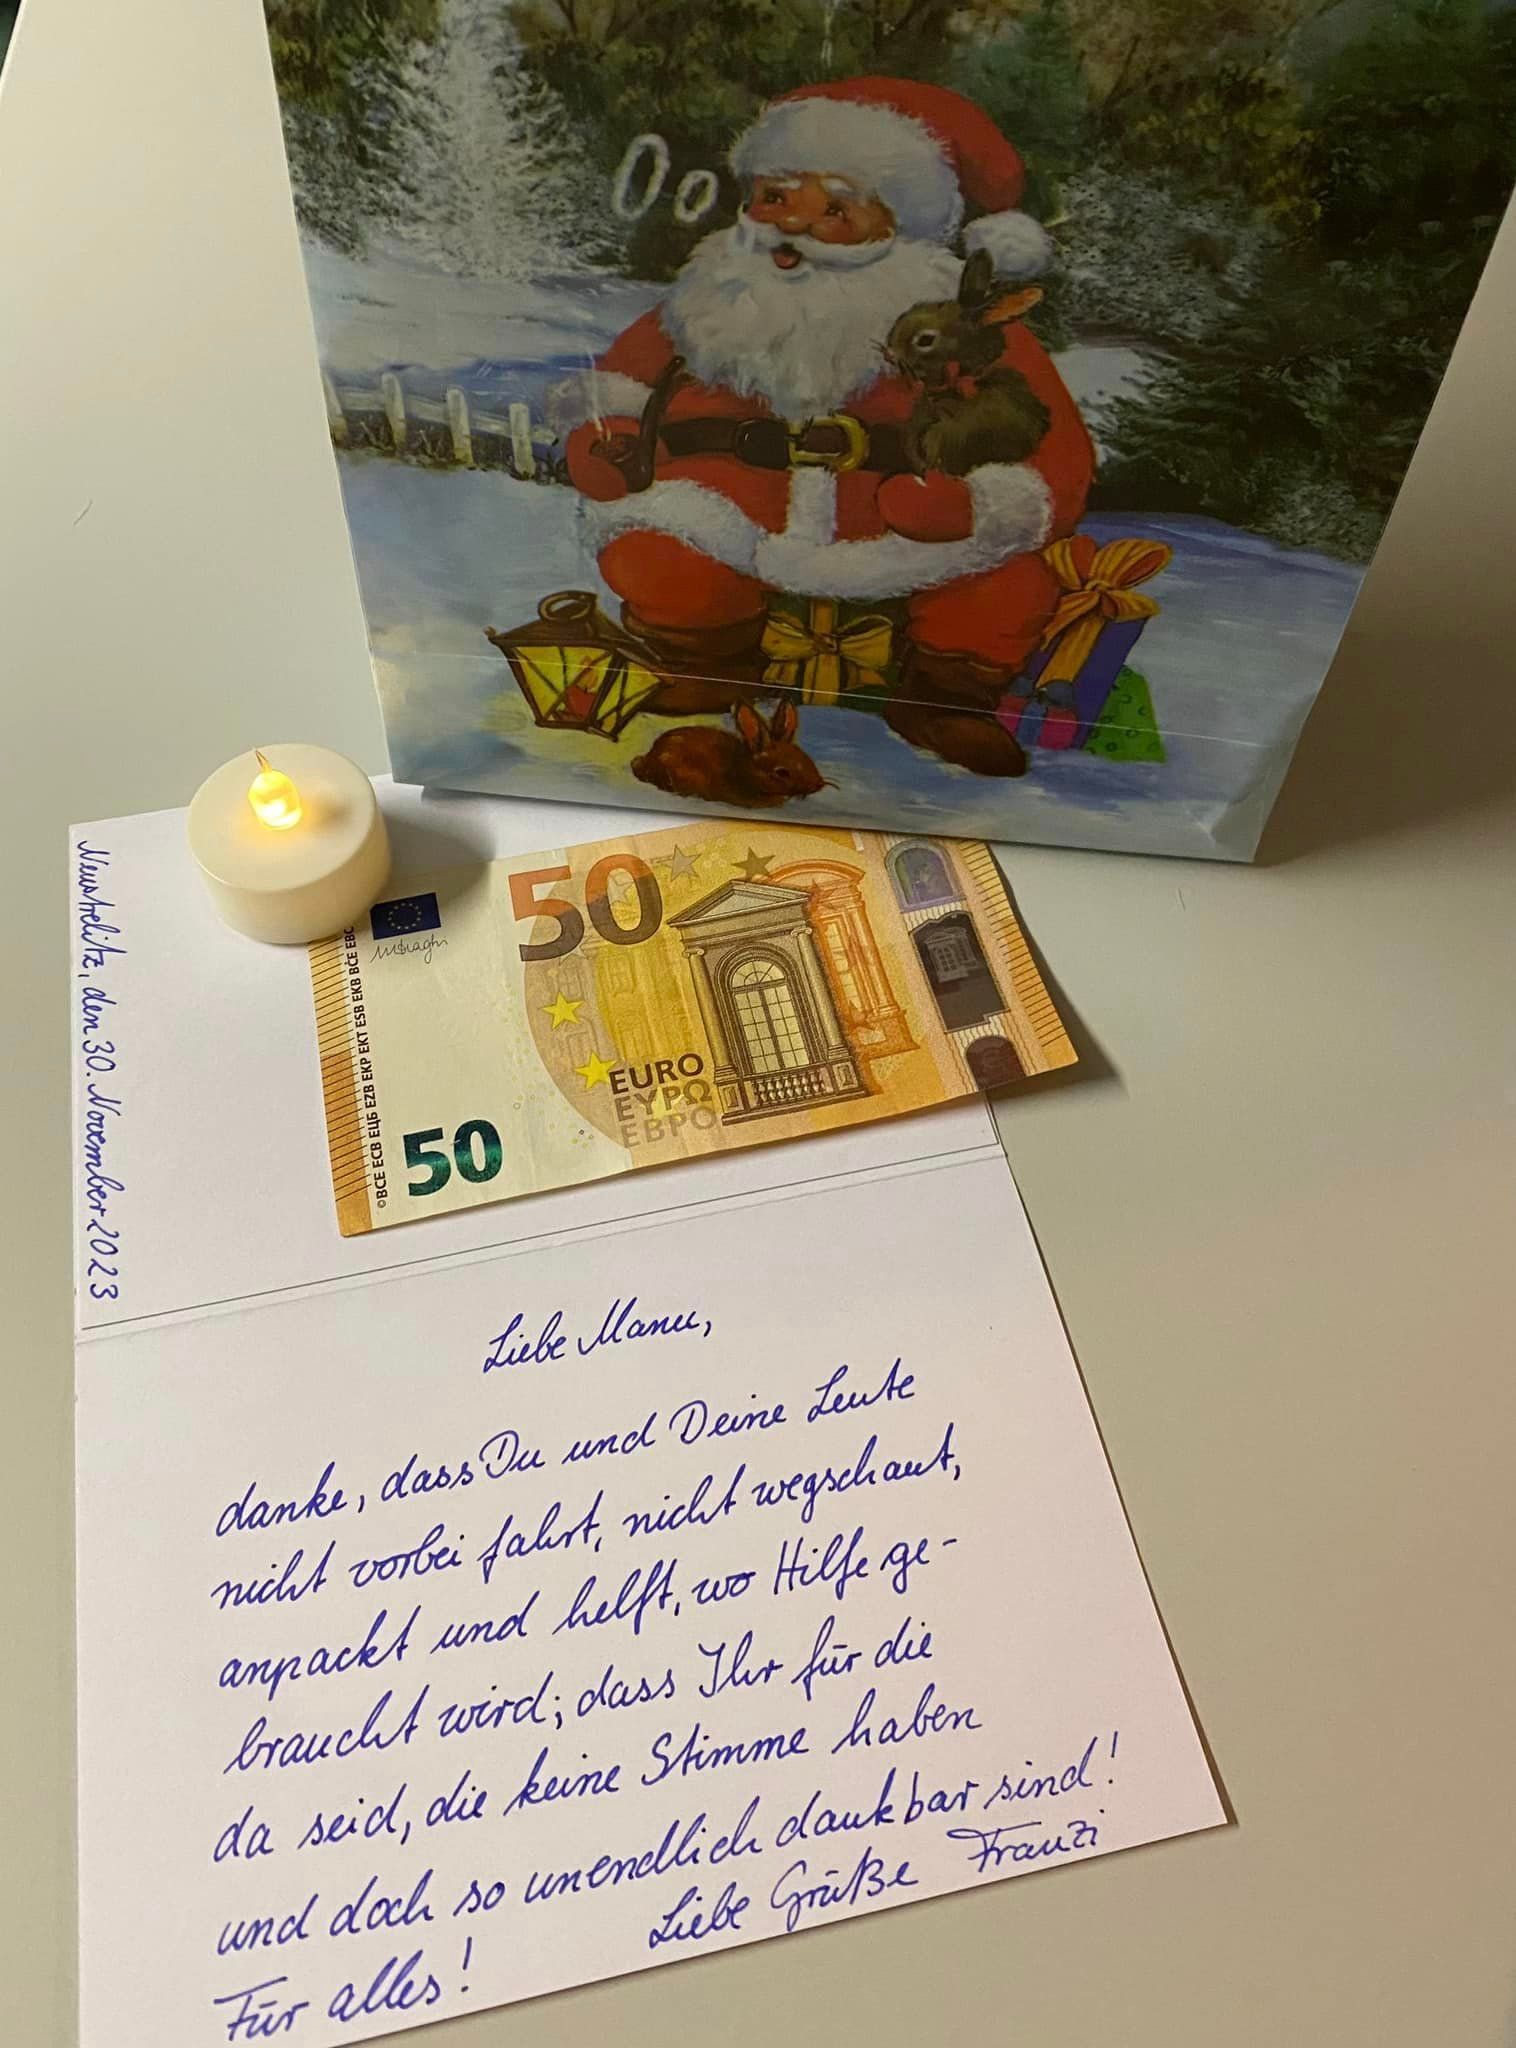 50
EURO
ΕΥΡΩ
ЕВРО
50
©BCE ECB ЕЦБ EZB EKP EKT ESB EKB BĊE EBC
Neustrelitz, den 30. November 2023
Liebe Manu,
danke, dass Du und Deine Leute
nicht vorbei fahrt, nicht wegschaut,
anpackt und helft, wo Hilfe ge-
braucht wird; dass Ihr für die
da seid, die keine Stimme haben
und doch so unendlich dankbar sind!
Für alles!
Liebe Grüße Franzi